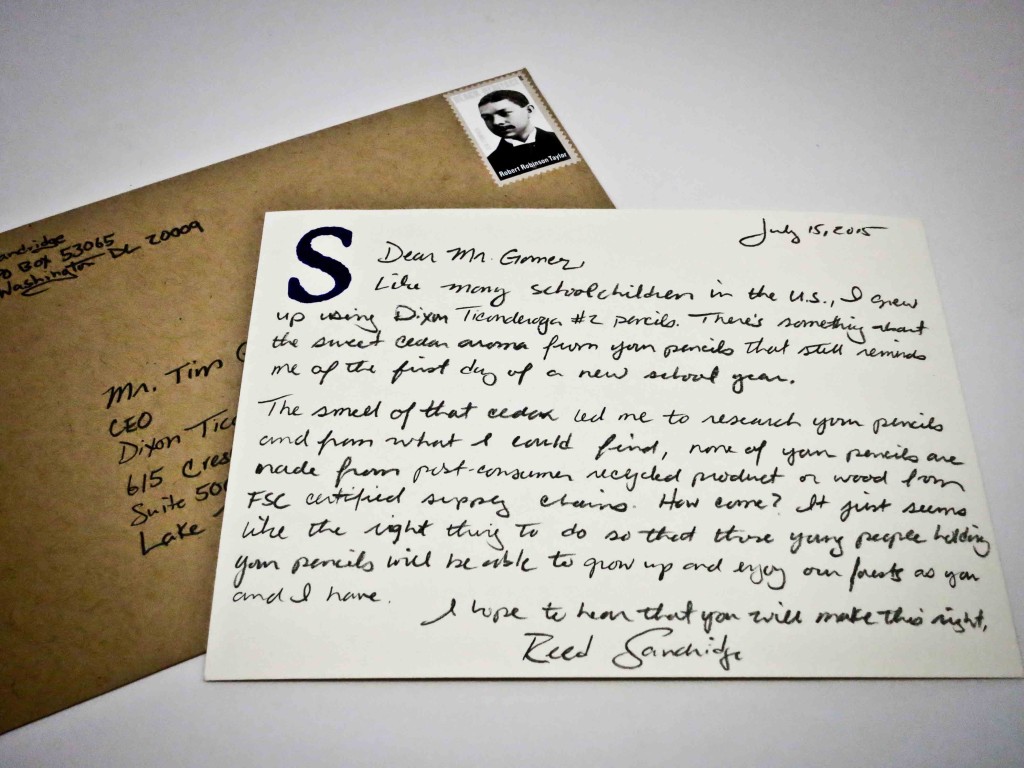 Robert Robinson Taylor
andridge
O Box 53065
Washington DC 20009
Mr. Tim
CEO
Dixon Tico
615 Cres
Suite 500
Lake
S
July 15, 2015
Dear Mr. Gomez,
Like many schoolchildren in the U.S., I grew
up using Dixon Ticonderoga #2 pencils. There's something about
the sweet cedar aroma from your pencils that still reminds
me of the first day of a new school year.
The smell of that cedar led me to research your pencils
and from what I could find, none of your pencils are
made from post-consumer recycled product or wood from
FSC certified supply chains. How come? It just seems
like the right thing to do so that those young people holding
your pencils will be able to grow up and enjoy our forests as you
and I have.
I hope to hear that you will make this right,
Reed Sandridge